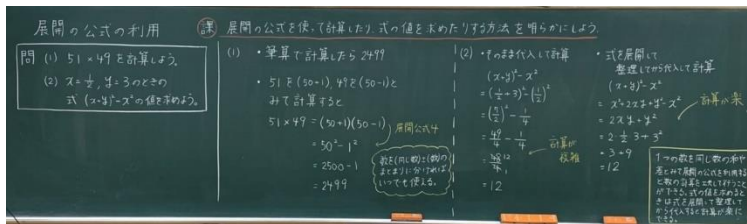 展開の公式の利用
課 展開の公式を使って計算したり、式の値を求めたりする方法を明らかにしよう。
問 (1) 51×49を計算しよう。
(2) x=1/2, y=3のときの
式 (x+y)²-x²の値を求めよう。
(1) ・筆算で計算したら 2499
・51を(50+1), 49を(50-1)と
みて計算すると
51×49 = (50+1)(50-1)
= 50²-1²
= 2500-1
= 2499
展開公式4
数を(同じ数)±(数)の
まとまりに分ければ
いつでも使える。
(2) ・そのまま代入して計算
(x+y)²-x²
= (1/2+3)²-(1/2)²
= (7/2)²-1/4
= 49/4-1/4
= 48/4
= 12
計算が
複雑
・式を展開して
整理してから代入して計算
(x+y)²-x²
= x²+2xy+y²-x²
= 2xy+y²
= 2・1/2・3+3²
= 3+9
= 12
計算が楽
1つの数を同じ数の和や
差とみて展開の公式を利用する
と数の計算を工夫して行うこと
ができる。式の値を求めると
きは式を展開して整理して
から代入すると計算が楽に
できる。